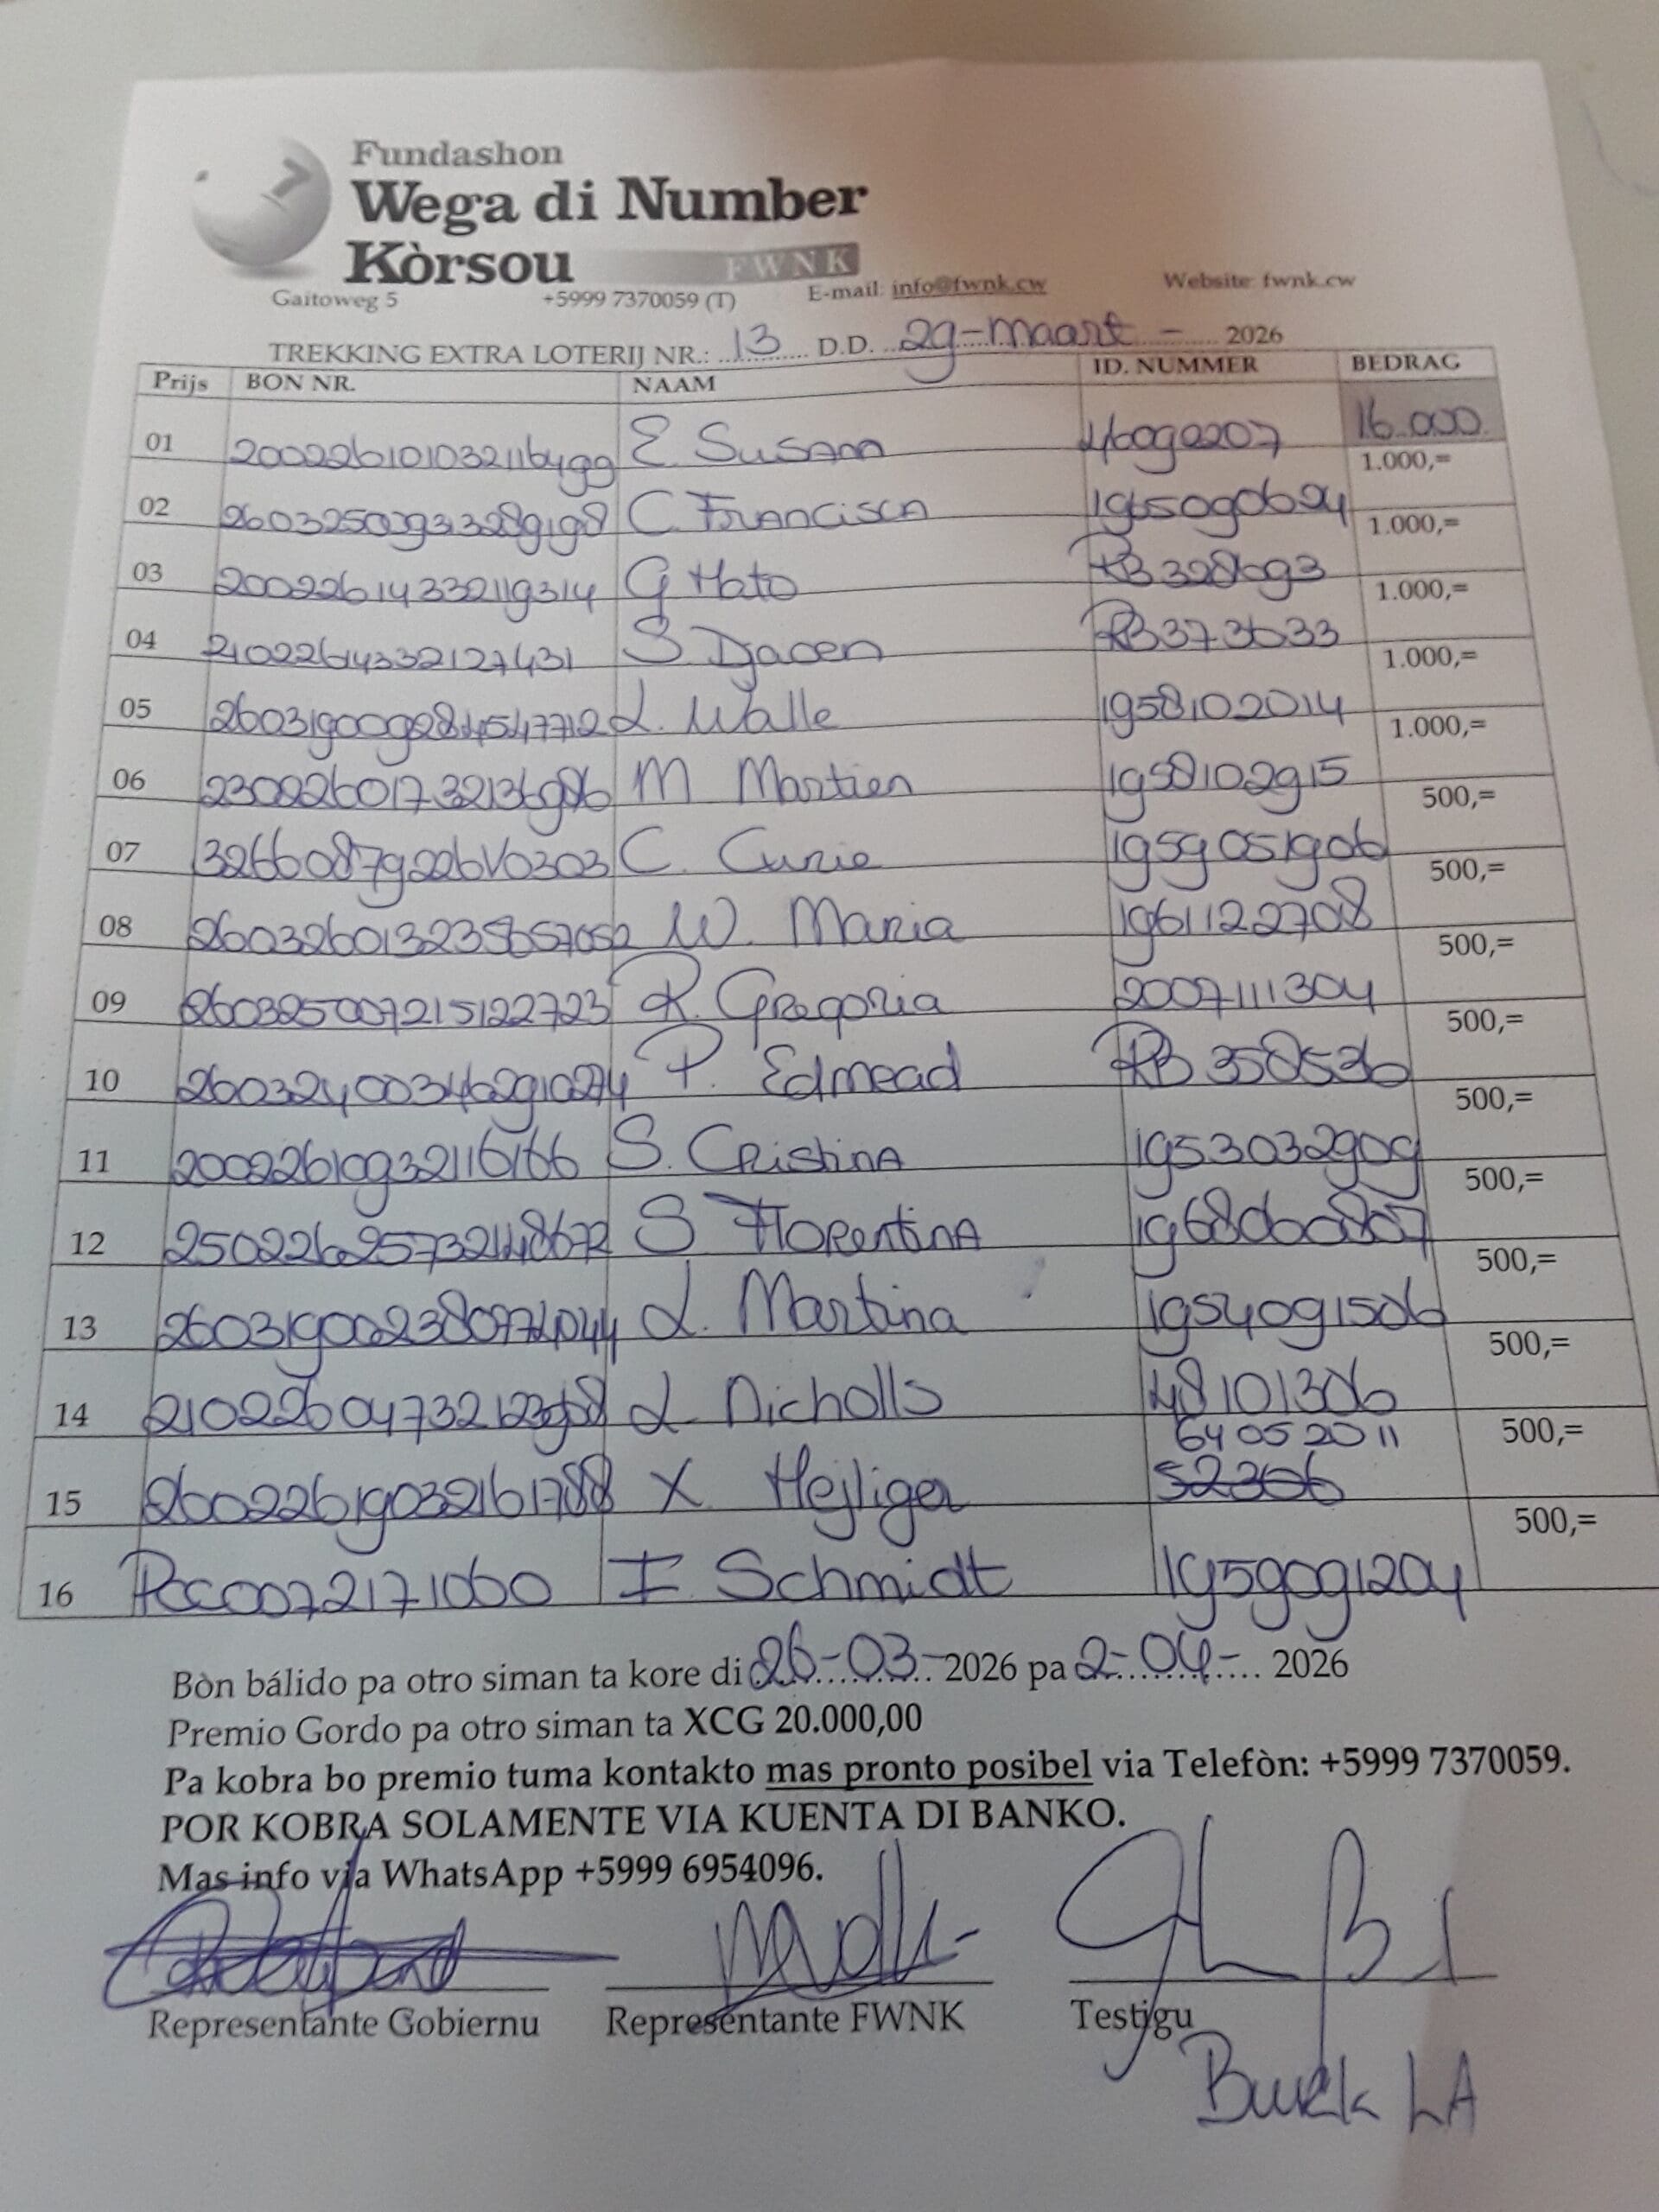 Fundashon
Wega di Number
Kòrsou FWNK
Gaitoweg 5 +5999 7370059 (T) E-mail: info@fwnk.cw Website: fwnk.cw
TREKKING EXTRA LOTERIJ NR.: 13 D.D. 29-maart - 2026
Prijs BON NR. NAAM ID. NUMMER BEDRAG
01 E Susana 46090207 16.000
02 C. Francisca 1965090624 1.000,=
03 20022614332119314 G Hato RB328693 1.000,=
04 21022614332127431 S RB373633 1.000,=
05 L. Walle 1958102014 1.000,=
06 M Martien 1958102915 1.000,=
07 C. Curie 1959051906 500,=
08 W. Maria 1961122708 500,=
09 260325007215122723 R. Gregoria 2007111304 500,=
10 P. Edmead RB358536 500,=
11 20022610932116166 S. Cristina 1953032909 500,=
12 S Florentina 1968060807 500,=
13 L. Martina 1954091506 500,=
14 L. Nicholls 48101306 500,=
64052011
15 26022619032161788 X. Hejliger 52306 500,=
16 PCC0072171060 F. Schmidt 1959091204 500,=
Bòn bálido pa otro siman ta kore di 26-03-2026 pa 2-04-2026
Premio Gordo pa otro siman ta XCG 20.000,00
Pa kobra bo premio tuma kontakto mas pronto posibel via Telefòn: +5999 7370059.
POR KOBRA SOLAMENTE VIA KUENTA DI BANKO.
Mas info via WhatsApp +5999 6954096.
Representante Gobiernu Representante FWNK Testigu
LA